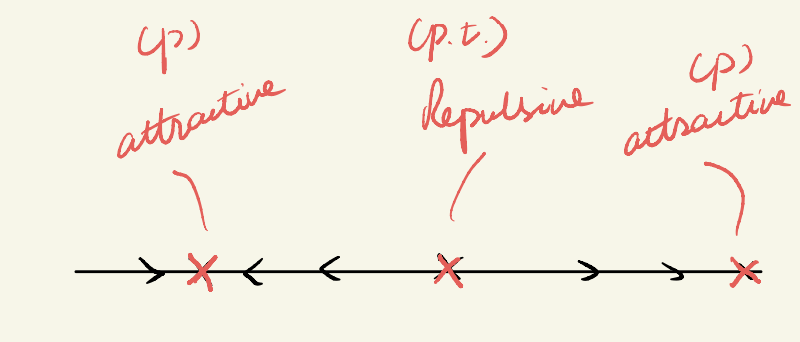 (p)
attractive
(p.t.)
Repulsive
(p)
attractive